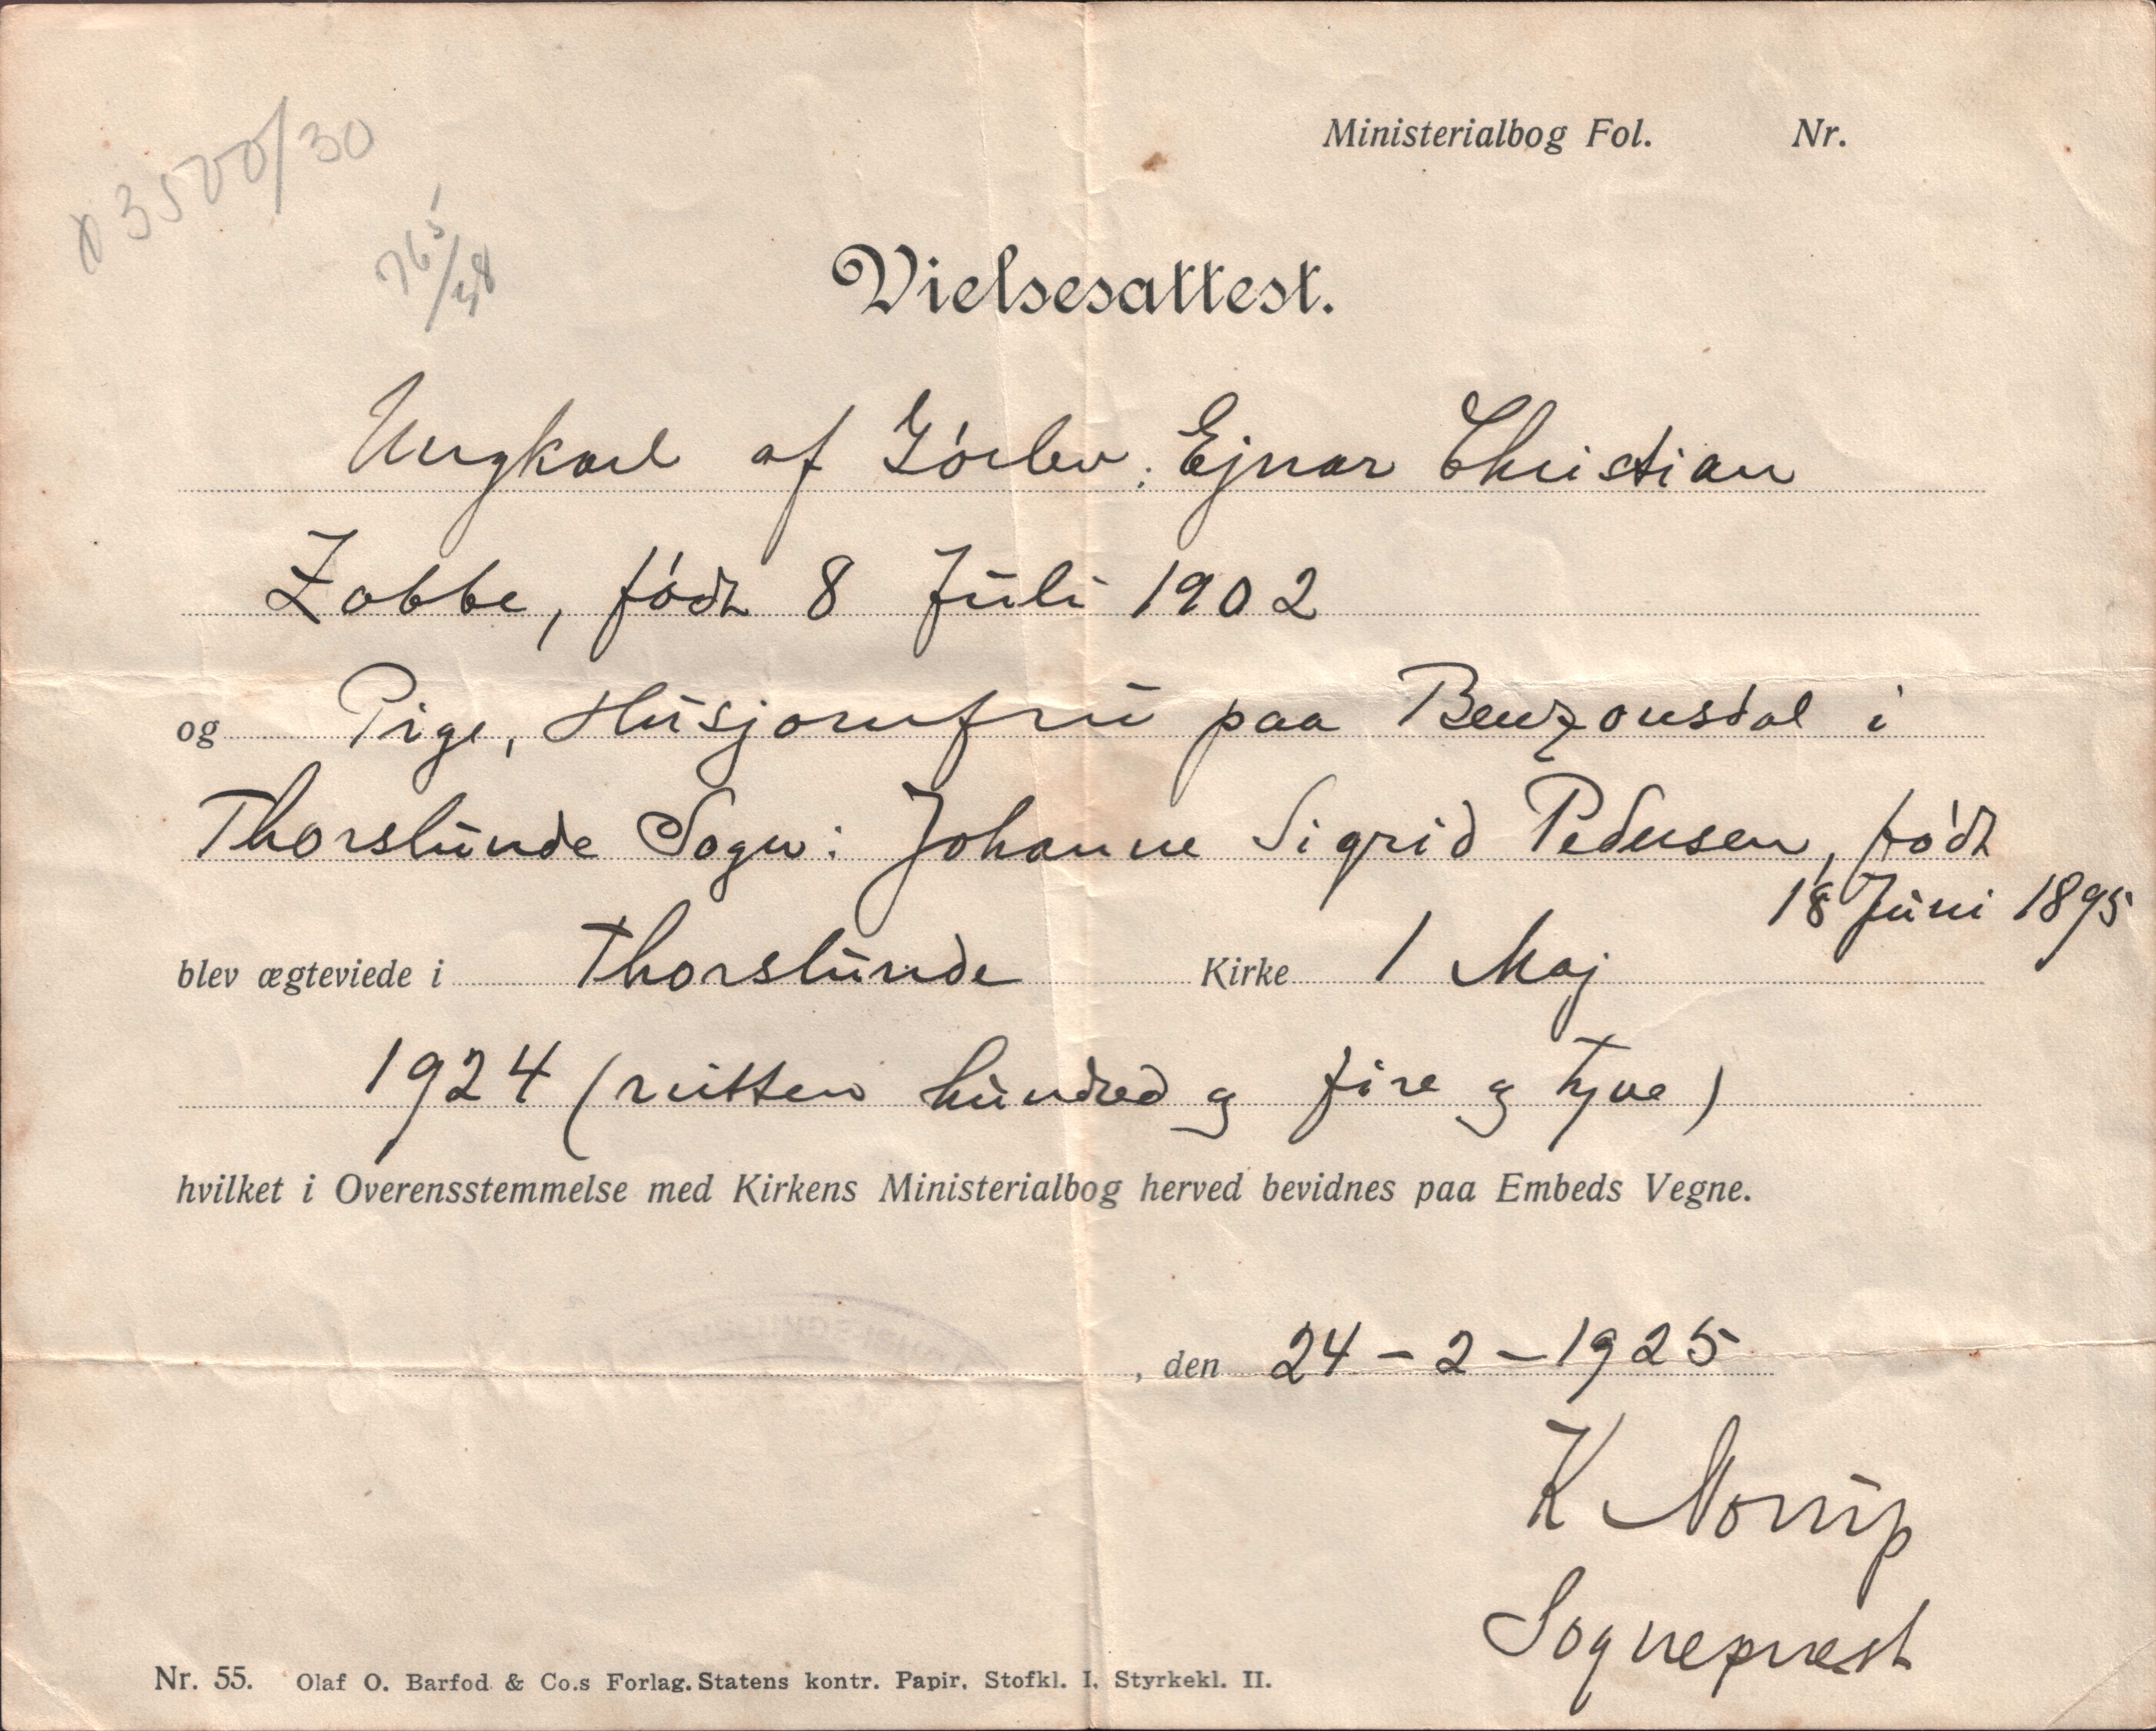 Ministerialbog Fol. Nr.
3500/30
765/48
Vielsesattest.
Ungkarl af Gørlev: Ejnar Christian
Zobbe, født 8 Juli 1902
og Pige, Husjomfru paa Benzonsdal i
Thorslunde Sogn: Johanne Sigrid Pedersen, født
18 Juni 1895
blev ægteviede i Thorslunde Kirke 1 Maj
1924 (nitten hundred og fire og tyve)
hvilket i Overensstemmelse med Kirkens Ministerialbog herved bevidnes paa Embeds Vegne.
, den 24-2-1925
K Norup
Sognepræst
Nr. 55. Olaf O. Barfod & Co.s Forlag. Statens kontr. Papir. Stofkl. I. Styrkekl. II.